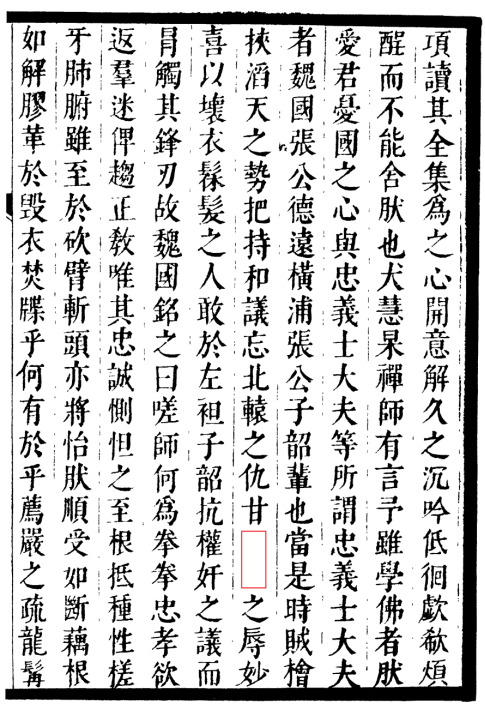 項讀其全集爲之心開意解久之沉吟低徊歔欷煩
酲而不能舍肰也犬慧杲禪師有言予雖學佛者肰
愛君憂國之心與忠義士大夫等所謂忠義士大夫
者魏國張公德遠橫浦張公子韶輩也當是時賊檜
挾滔天之勢把持和議忘北轅之仇甘之辱妙
喜以壞衣髹髮之人敢於左袒子韶抗權奸之議而
冐觸其鋒刃故魏國銘之曰嗟師何爲拳拳忠孝欲
返羣迷俾趨正敎唯其忠誠惻怛之至根抵種性槎
牙肺腑雖至於砍臂斬頭亦將怡肰順受如斷藕根
如解膠革於毀衣焚牒乎何有於乎薦嚴之疏龍髯